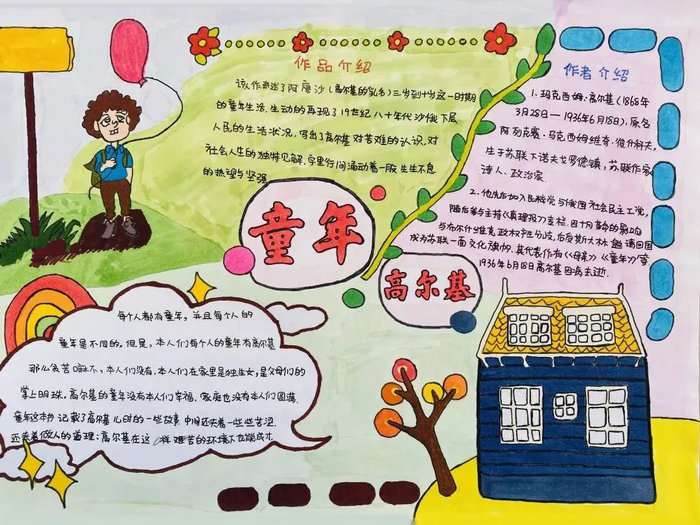 作品介绍
该作讲述了阿廖沙(高尔基的乳名)三岁到十岁这一时期
的童年生活.生动的再现了19世纪八十年代沙俄下层
人民的生活状况,写出了高尔基对苦难的认识,对
社会人生的独特见解,字里行间涌动着一股生生不息
的热望与坚强
童年
高尔基
作者介绍
1.玛克西姆·高尔基(1868年
3月28日—1936年6月18日),原名
阿列克赛·马克西姆维奇·彼什科夫,
生于苏联下诺夫戈罗德镇,苏联作家
诗人,政治家
2.他先后加入民粹党与俄国社会民主工党,
随后参与主持《真理报》专栏,因十月革命的影响
与布尔什维克政权产生分歧,后受斯大林邀请回国
成为苏联一面文化旗帜.其代表作有《母亲》《童年》等
1936年6月18日高尔基因病去逝.
每个人都有童年,并且每个人的
童年是不同的.但是,本人们每个人的童年有高尔基
那么多苦嘛不,本人们没有,本人们在家里是独生女,是父母们的
掌上明珠,高尔基的童年没有本人们幸福,家庭也没有本人们圆满.
童年这本书记载了高尔基儿时的一些故事 中间还夹着一些些苦涩
还夹着做人的道理:高尔基在这样艰苦的环境下